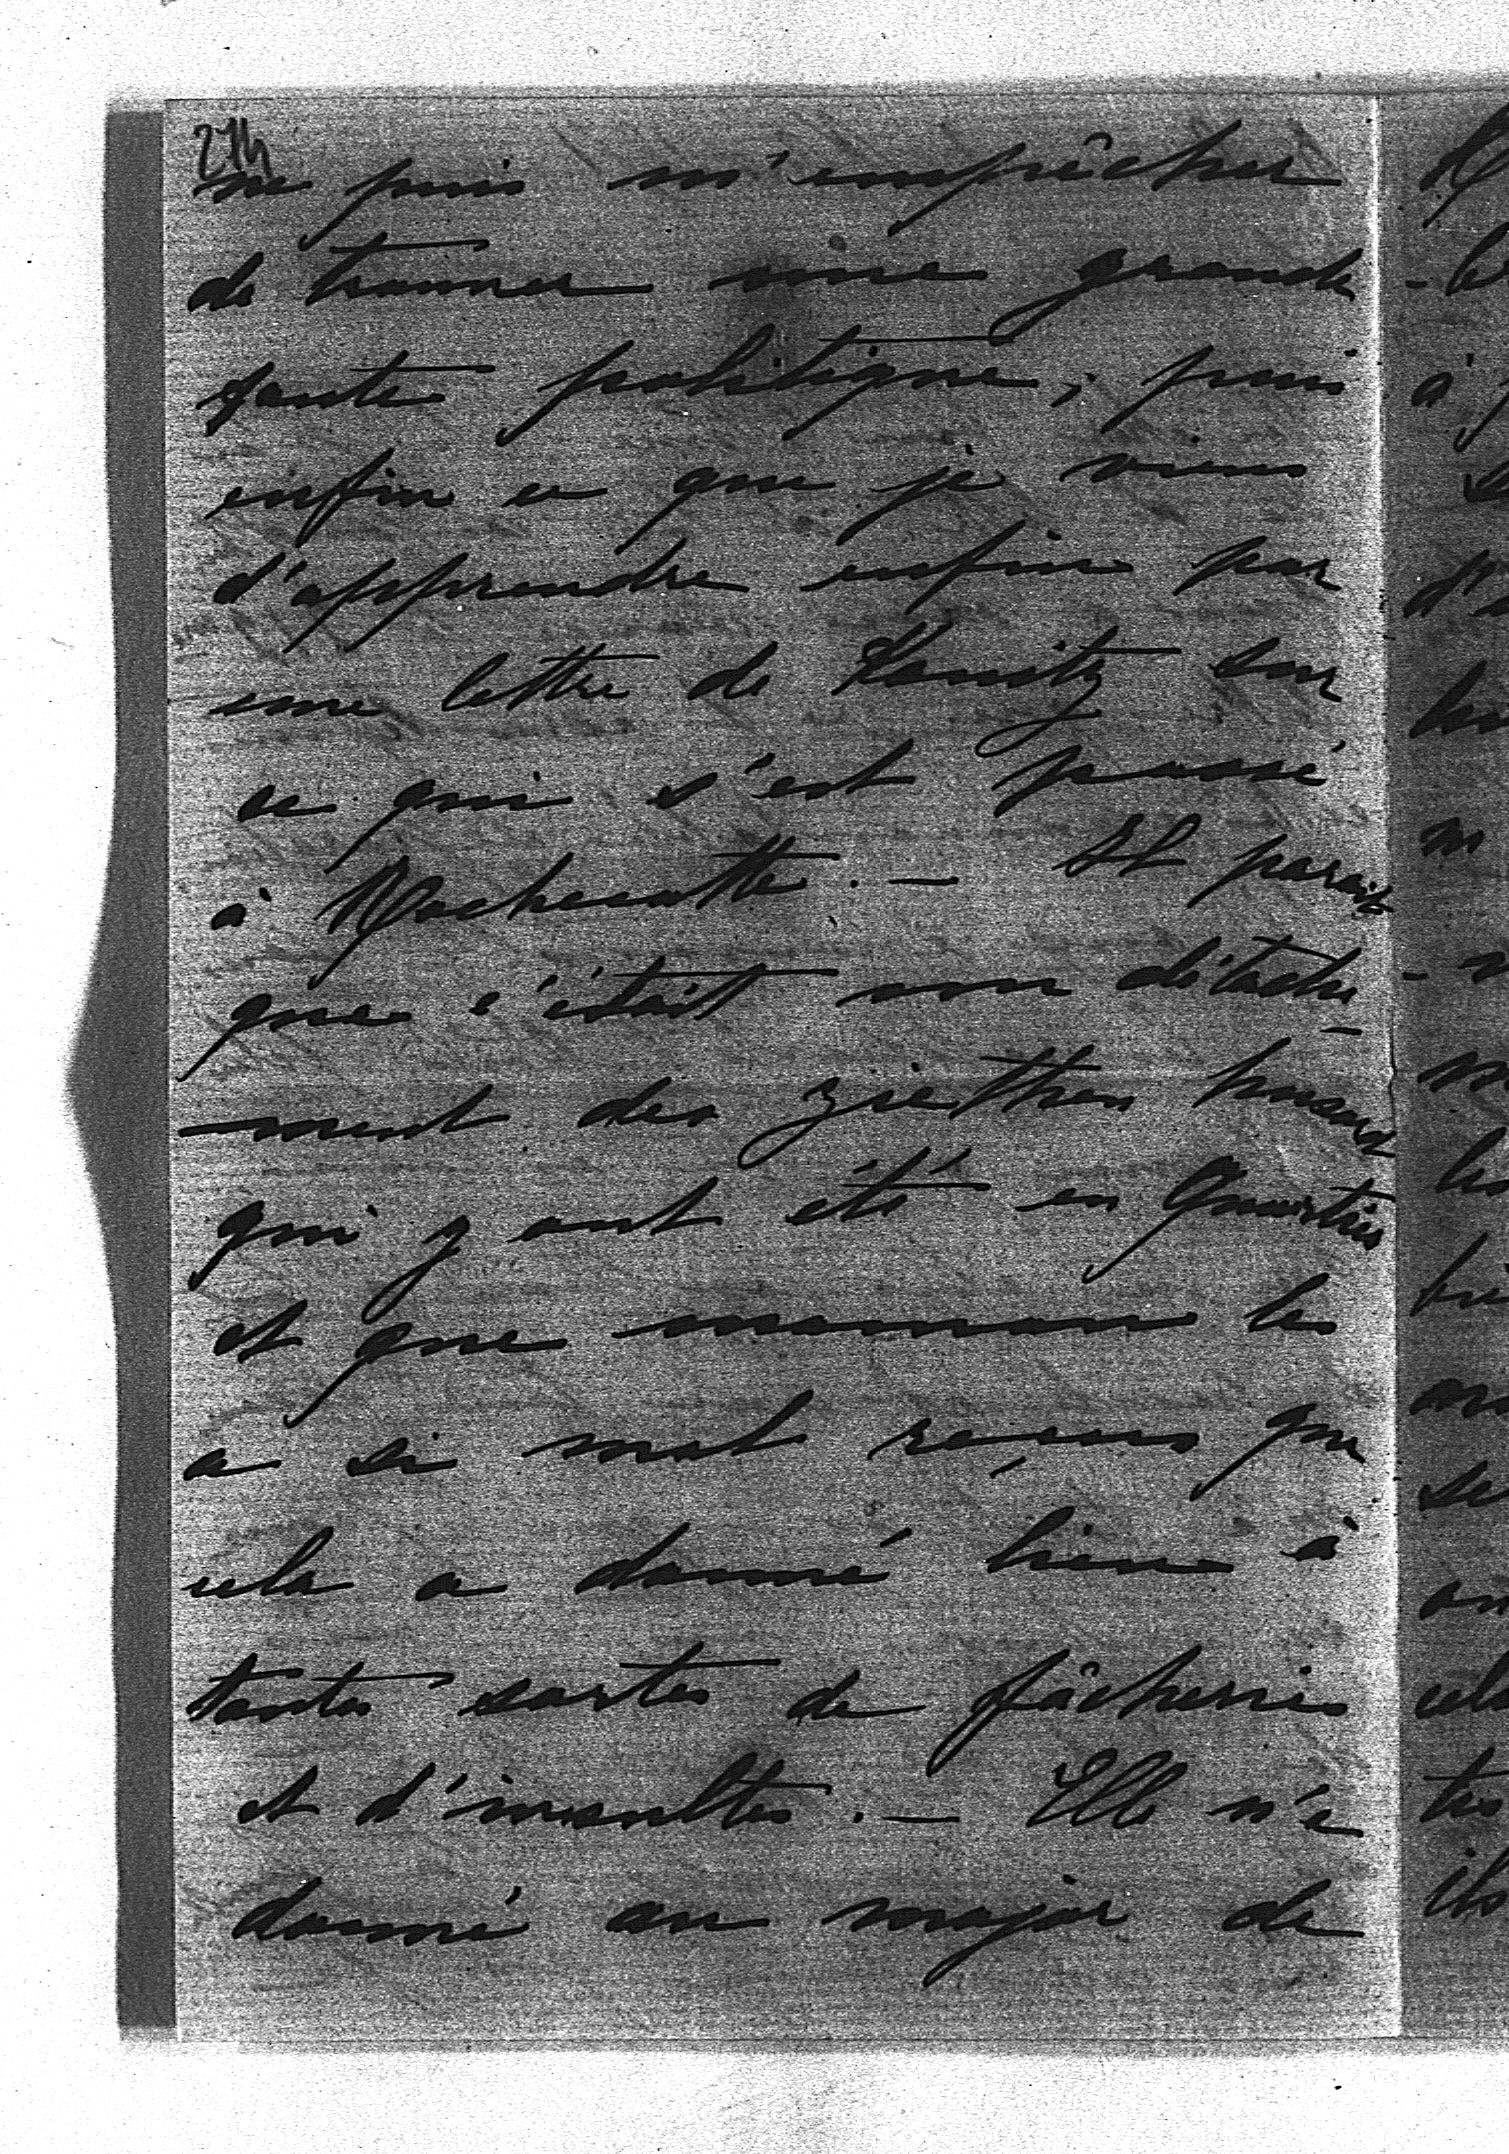 274
ne puis m'empêcher
de trouver une grande
faute politique; puis
enfin ce que je viens
d'apprendre enfin par
une lettre de Kanitz sur
ce qui s'est passé
à Rochecotte. — Il parait
que c'était un détache-
-ment des Ziethen husard
qui y ont été en Quartier
et que maman les
a si mal reçus que
cela a donné lieu à
toutes sortes de fâcheries
et d'insultes. — Elle n'a
donné au major de